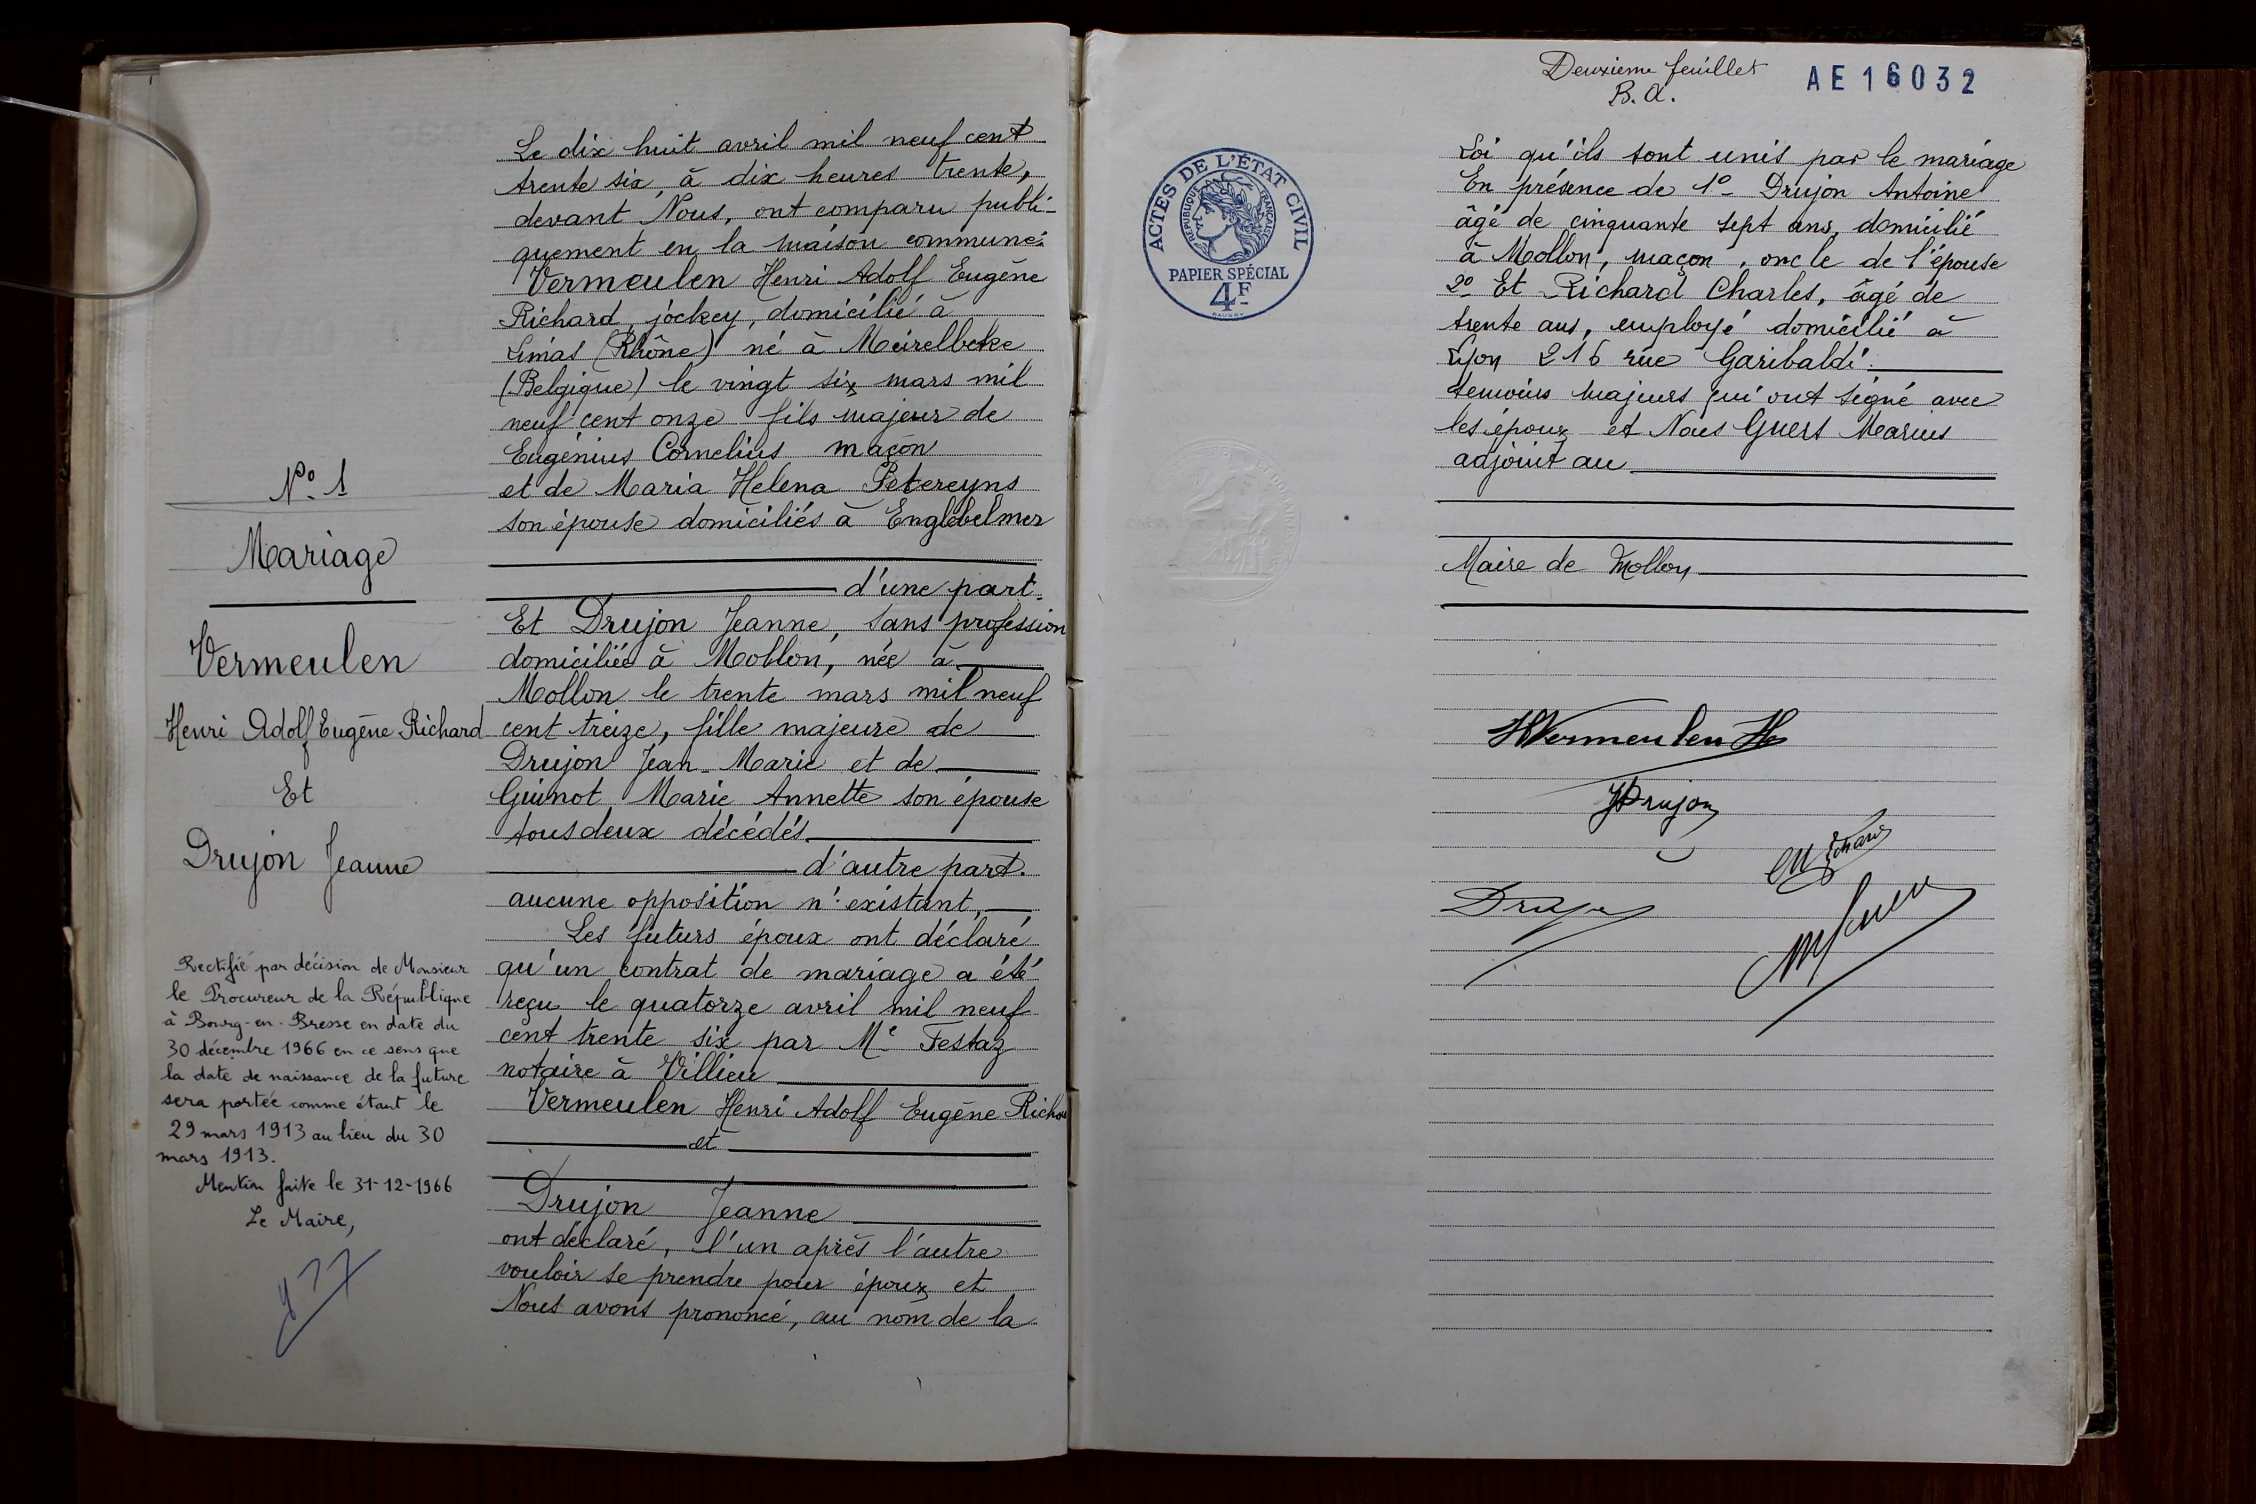 N° 1
Mariage
Vermeulen
Henri Adolf Eugène Richard
Et
Drujon Jeanne
Rectifié par décision de Monsieur
le Procureur de la République
à Bourg-en-Bresse en date du
30 décembre 1966 en ce sens que
la date de naissance de la future
sera portée comme étant le
29 mars 1913 au lieu du 30
mars 1913.
Mention faite le 31-12-1966
Le Maire,
Le dix huit avril mil neuf cent
trente six, à dix heures trente,
devant Nous, ont comparu publi-
quement en la maison commune:
Vermeulen Henri Adolf Eugène
Richard, jockey, domicilié à
Limas (Rhône) né à Meirelbeke
(Belgique) le vingt six mars mil
neuf cent onze fils majeur de
Eugénius Cornelius maçon
et de Maria Helena Petereyns
son épouse domiciliés à Englebelmer
d'une part.
Et Drujon Jeanne, sans profession
domiciliée à Mollon, née à
Mollon le trente mars mil neuf
cent treize, fille majeure de
Drujon Jean-Marie et de
Guinot Marie Annette son épouse
tous deux décédés
d'autre part.
aucune opposition n'existant,
Les futurs époux ont déclaré
qu'un contrat de mariage a été
reçu le quatorze avril mil neuf
cent trente six par Me Festaz
notaire à Villieu
Vermeulen Henri Adolf Eugène Richa
et
Drujon Jeanne
ont déclaré, l'un après l'autre
vouloir se prendre pour époux et
Nous avons prononcé, au nom de la
Deuxieme feuillet
B. A.
AE16032
ACTES DE L'ÉTAT CIVIL
RÉPUBLIQUE FRANÇAISE
PAPIER SPÉCIAL
4F
Loi qu'ils sont unis par le mariage
En présence de 1° Drujon Antoine
âgé de cinquante sept ans, domicilié
à Mollon, maçon, oncle de l'épouse
2° Et Richard Charles, âgé de
trente ans, employé domicilié à
Lyon 216 rue Garibaldi.
temoins majeurs qui ont signé avec
les époux et Nous Guers Marius
adjoint au
Maire de Mollon
HVermeulen
JDrujon